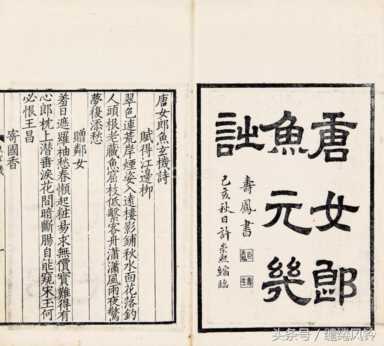 唐女郎
魚元幾
詩
壽鳳書
己亥秋日許崇熙縮臨
唐女郎魚玄機詩
賦得江邊柳
翠色連荒岸煙姿入遠樓影鋪秋水面花落釣
人頭根老藏魚窟枝低繫客舟瀟瀟風雨夜驚
夢復添愁
贈鄰女
羞日遮羅袖愁春懶起糚易求無價寶難得有
心郎枕上潛垂淚花間暗斷腸自能窺宋玉何
必恨王昌
寄國香
头条号/缱绻风铃